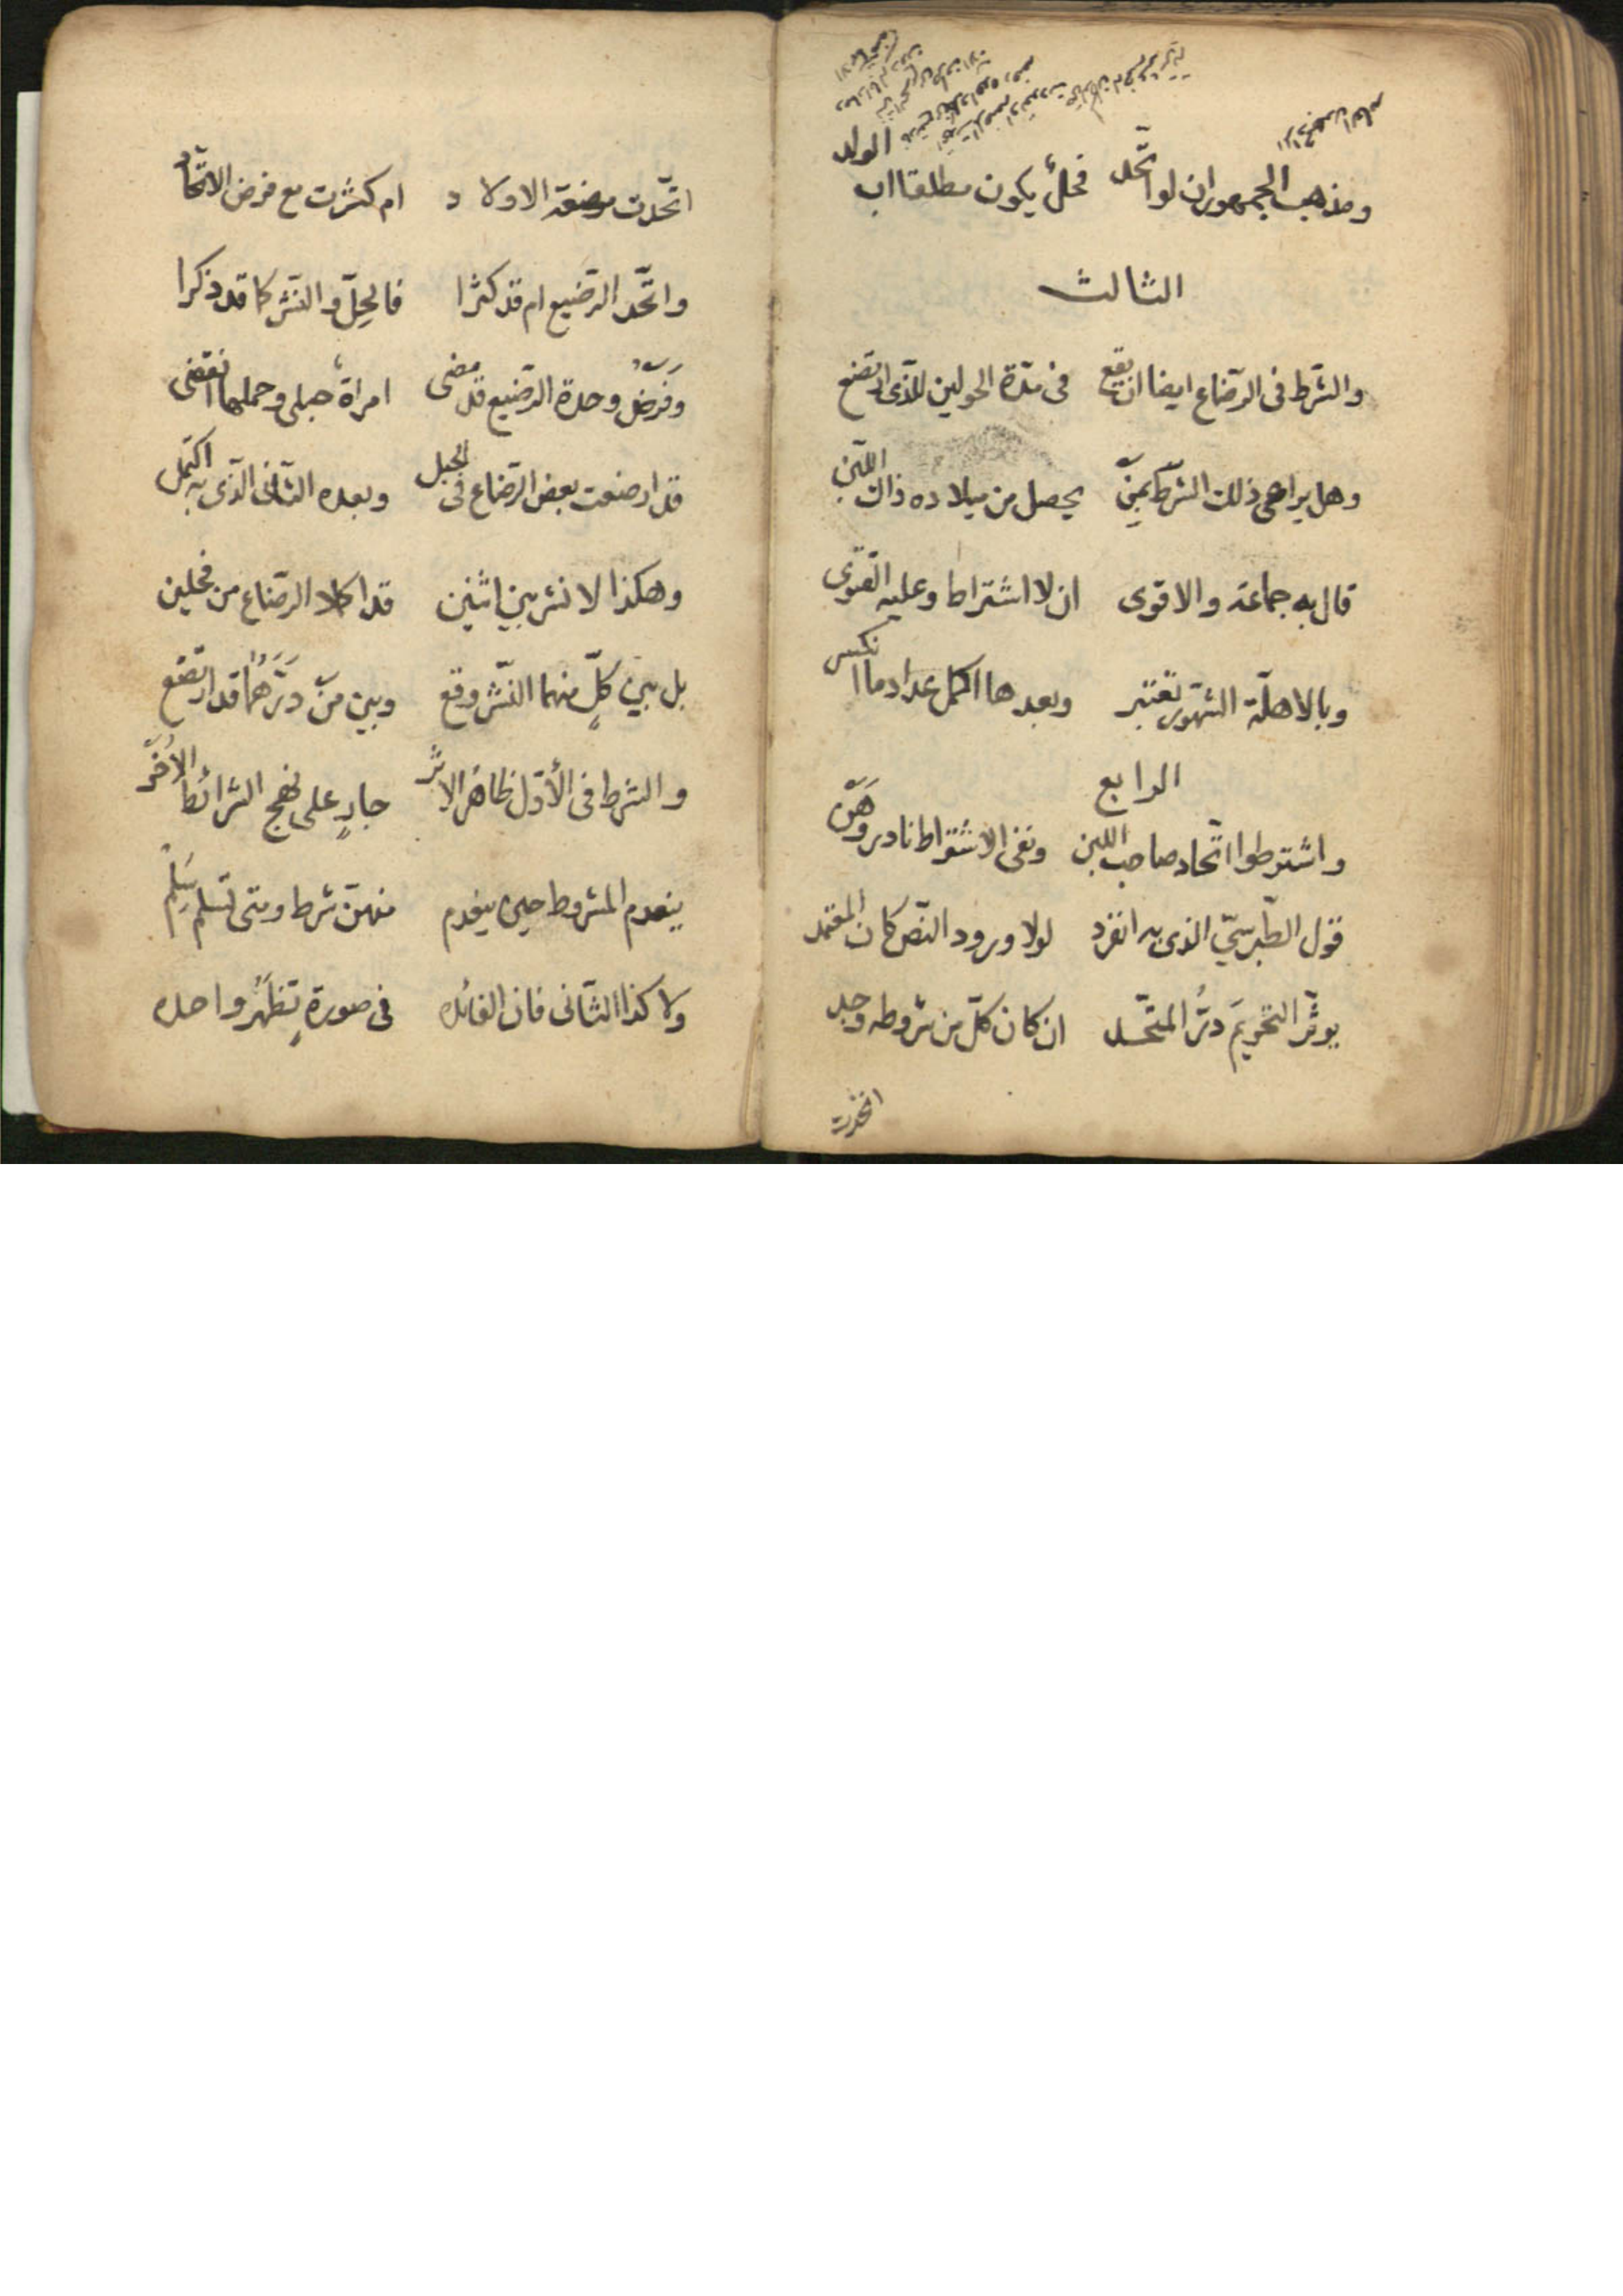 ومذهب الجمهور ان لو اتّحد فحل يكون مطلقا اب الولد
الثالث
والشّرط فى الرّضاع ايضا ان يقع فى مدّة الحولين للذّى ارتضع
وهل يراعى ذلك الشّرط بمن يحصل من ميلاده ذاك اللّبن
قال به جماعة والاقوى ان لا اشتراط وعليه الفتوى
وبالاهلّة الشّهور تعتبر وبعدها اكمل عدادما انكسر
الرابع
واشترطوا اتّحاد صاحب اللبن ونفى الاشتراط نادر وهن
قول الطّبرسىّ الذى به انفرد لولا ورود النّص كان المعتمد
يوثّر التحريمَ درُّ المتّحد ان كان كلّ من شروطه وجد
اتّحدت
اتّحدت مرضعة الاولاد ام كثرت مع فرض الاتّحاد
واتّحد الرّضيع ام قد كثرا فالحِلّ والنّشر كما قد ذكرا
وفَرَضُ وحدة الرّضيع قد مضى امراة حبلى وحملها انقضى
قد ارضعت بعض الرّضاع فى الحبل وبعده الثّانى الّذى به اكتمل
وهكذا لا نشر بين اثنين قد اكملا الرّضاع من فحلين
بل بين كلٍّ منهما النّشر وقع وبين مَن دَرَّهُما قد ارتضع
والشرط فى الأوّل ظاهر الاثر جارٍ على نهج الشرائط الاُخَر
ينعدم المشروط حين ينعدم منهنّ شرط ومتى تسلم سَلِم
ولا كذا الثّانى فان الفائده فى صورةٍ تظهَرُ واحده